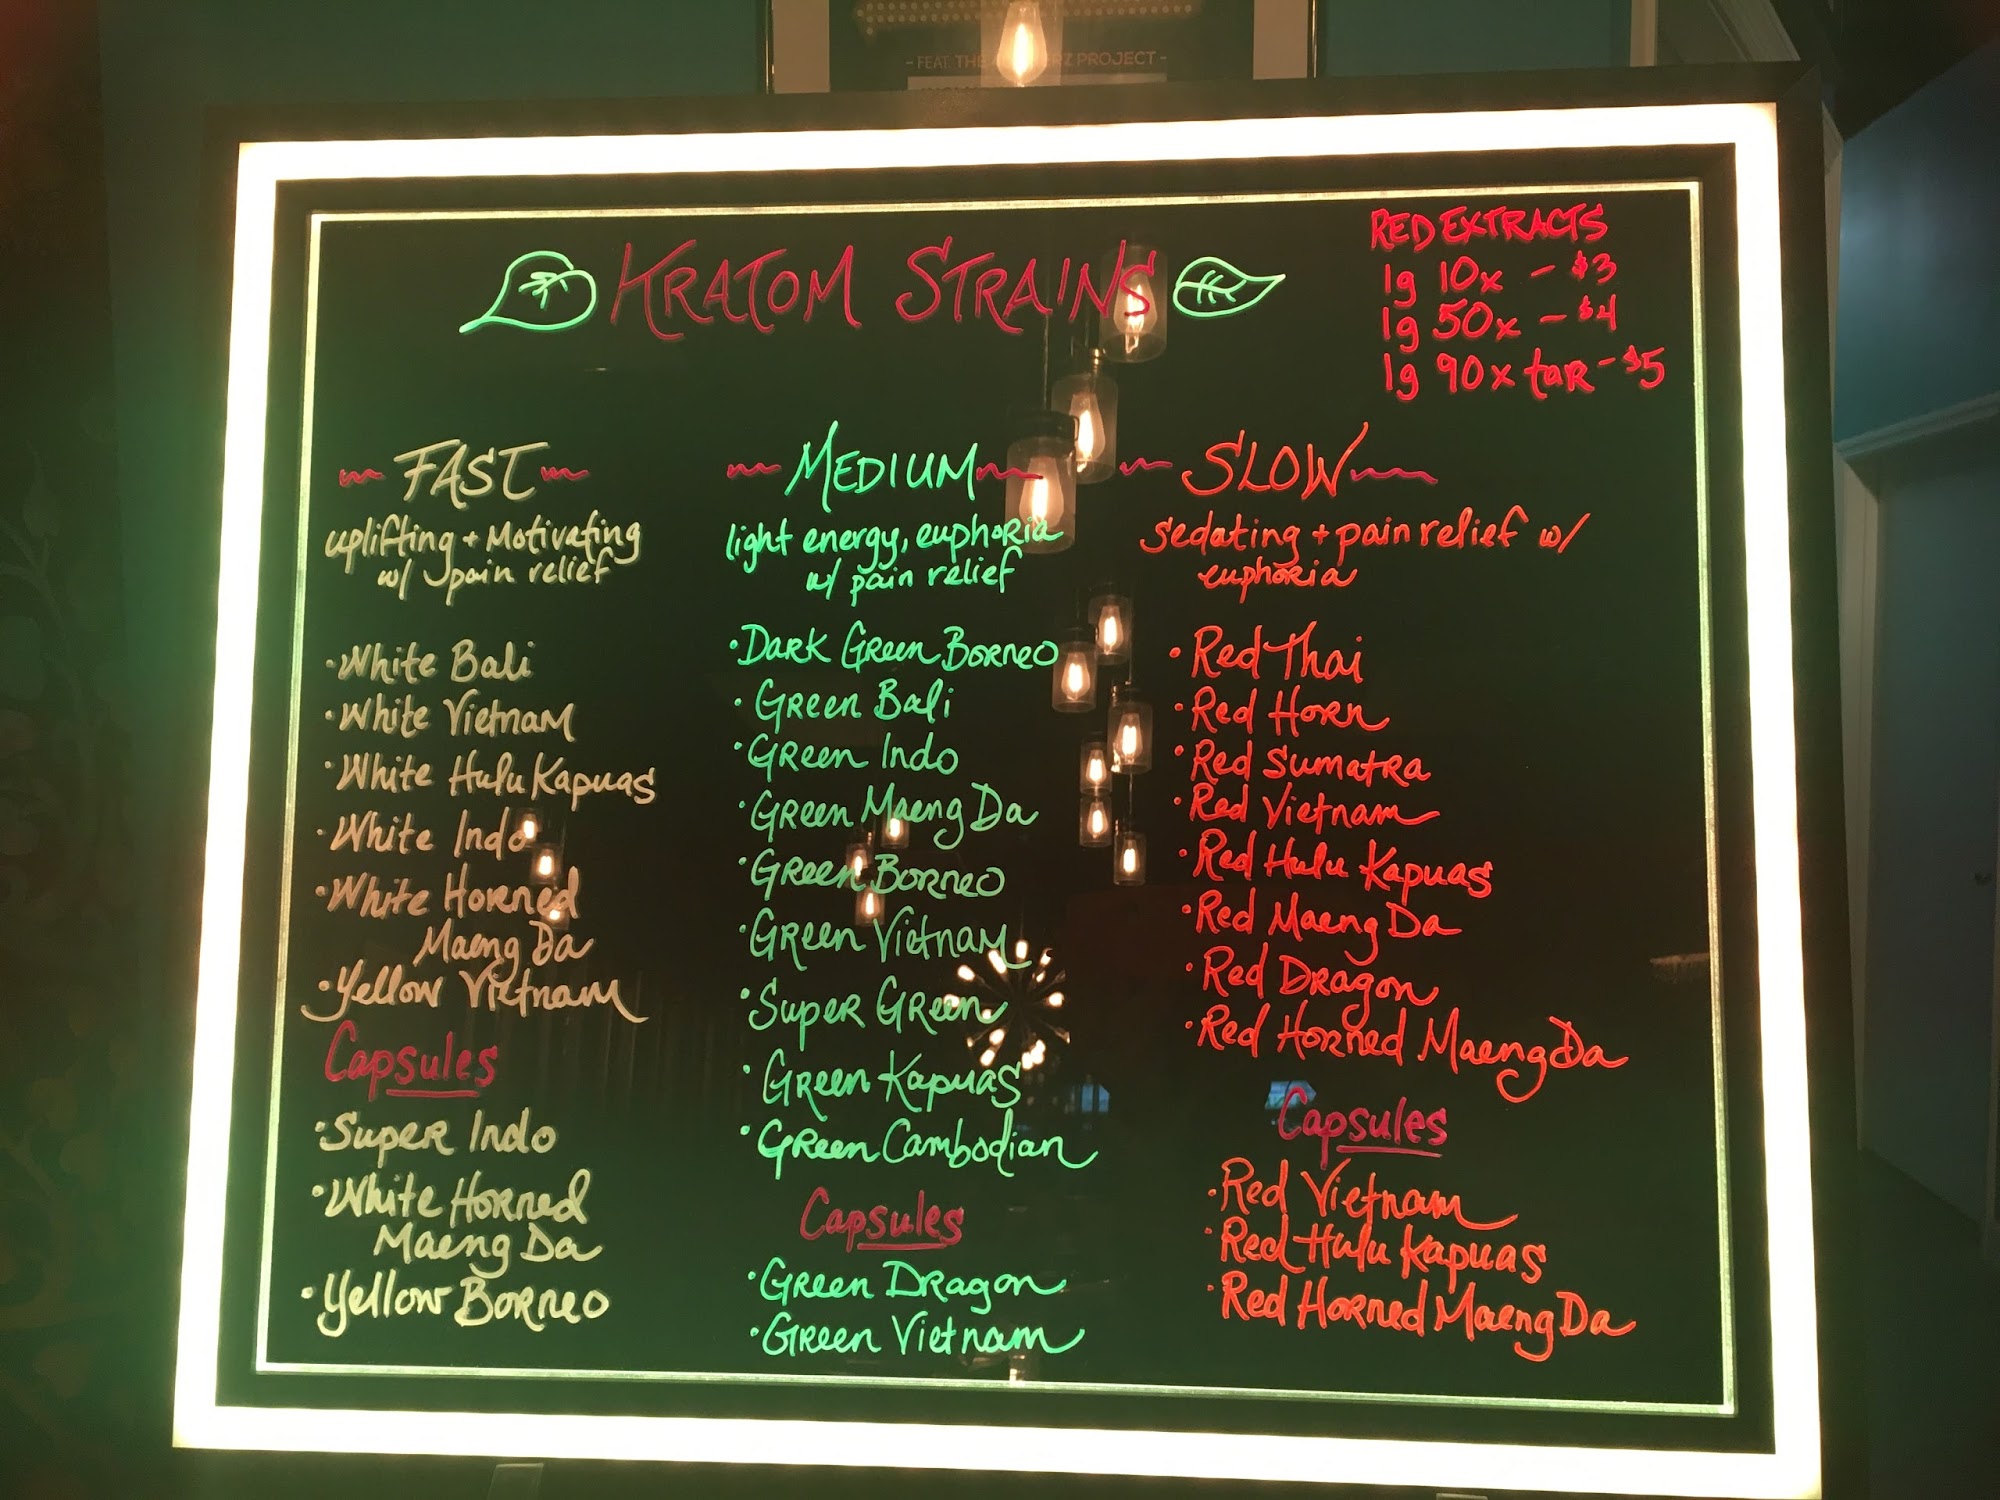 - FEAT. THE
PROJECT -
KRATOM STRAINS
RED EXTRACTS
1g 10x - $3
1g 50x - $4
1g 90x tar - $5
FAST
uplifting + Motivating
w/ pain relief
• White Bali
• White Vietnam
• White Hulu Kapuas
• White Indo
• White Horned
Maeng Da
• Yellow Vietnam
Capsules
• Super Indo
• White Horned
Maeng Da
• Yellow Borneo
MEDIUM
light energy, euphoria
w/ pain relief
• Dark Green Borneo
• Green Bali
• Green Indo
• Green Maeng Da
• Green Borneo
• Green Vietnam
• Super Green
• Green Kapuas
• Green Cambodian
Capsules
• Green Dragon
• Green Vietnam
SLOW
Sedating + pain relief w/
euphoria
• Red Thai
• Red Horn
• Red Sumatra
• Red Vietnam
• Red Hulu Kapuas
• Red Maeng Da
• Red Dragon
• Red Horned Maeng Da
Capsules
• Red Vietnam
• Red Hulu Kapuas
• Red Horned Maeng Da